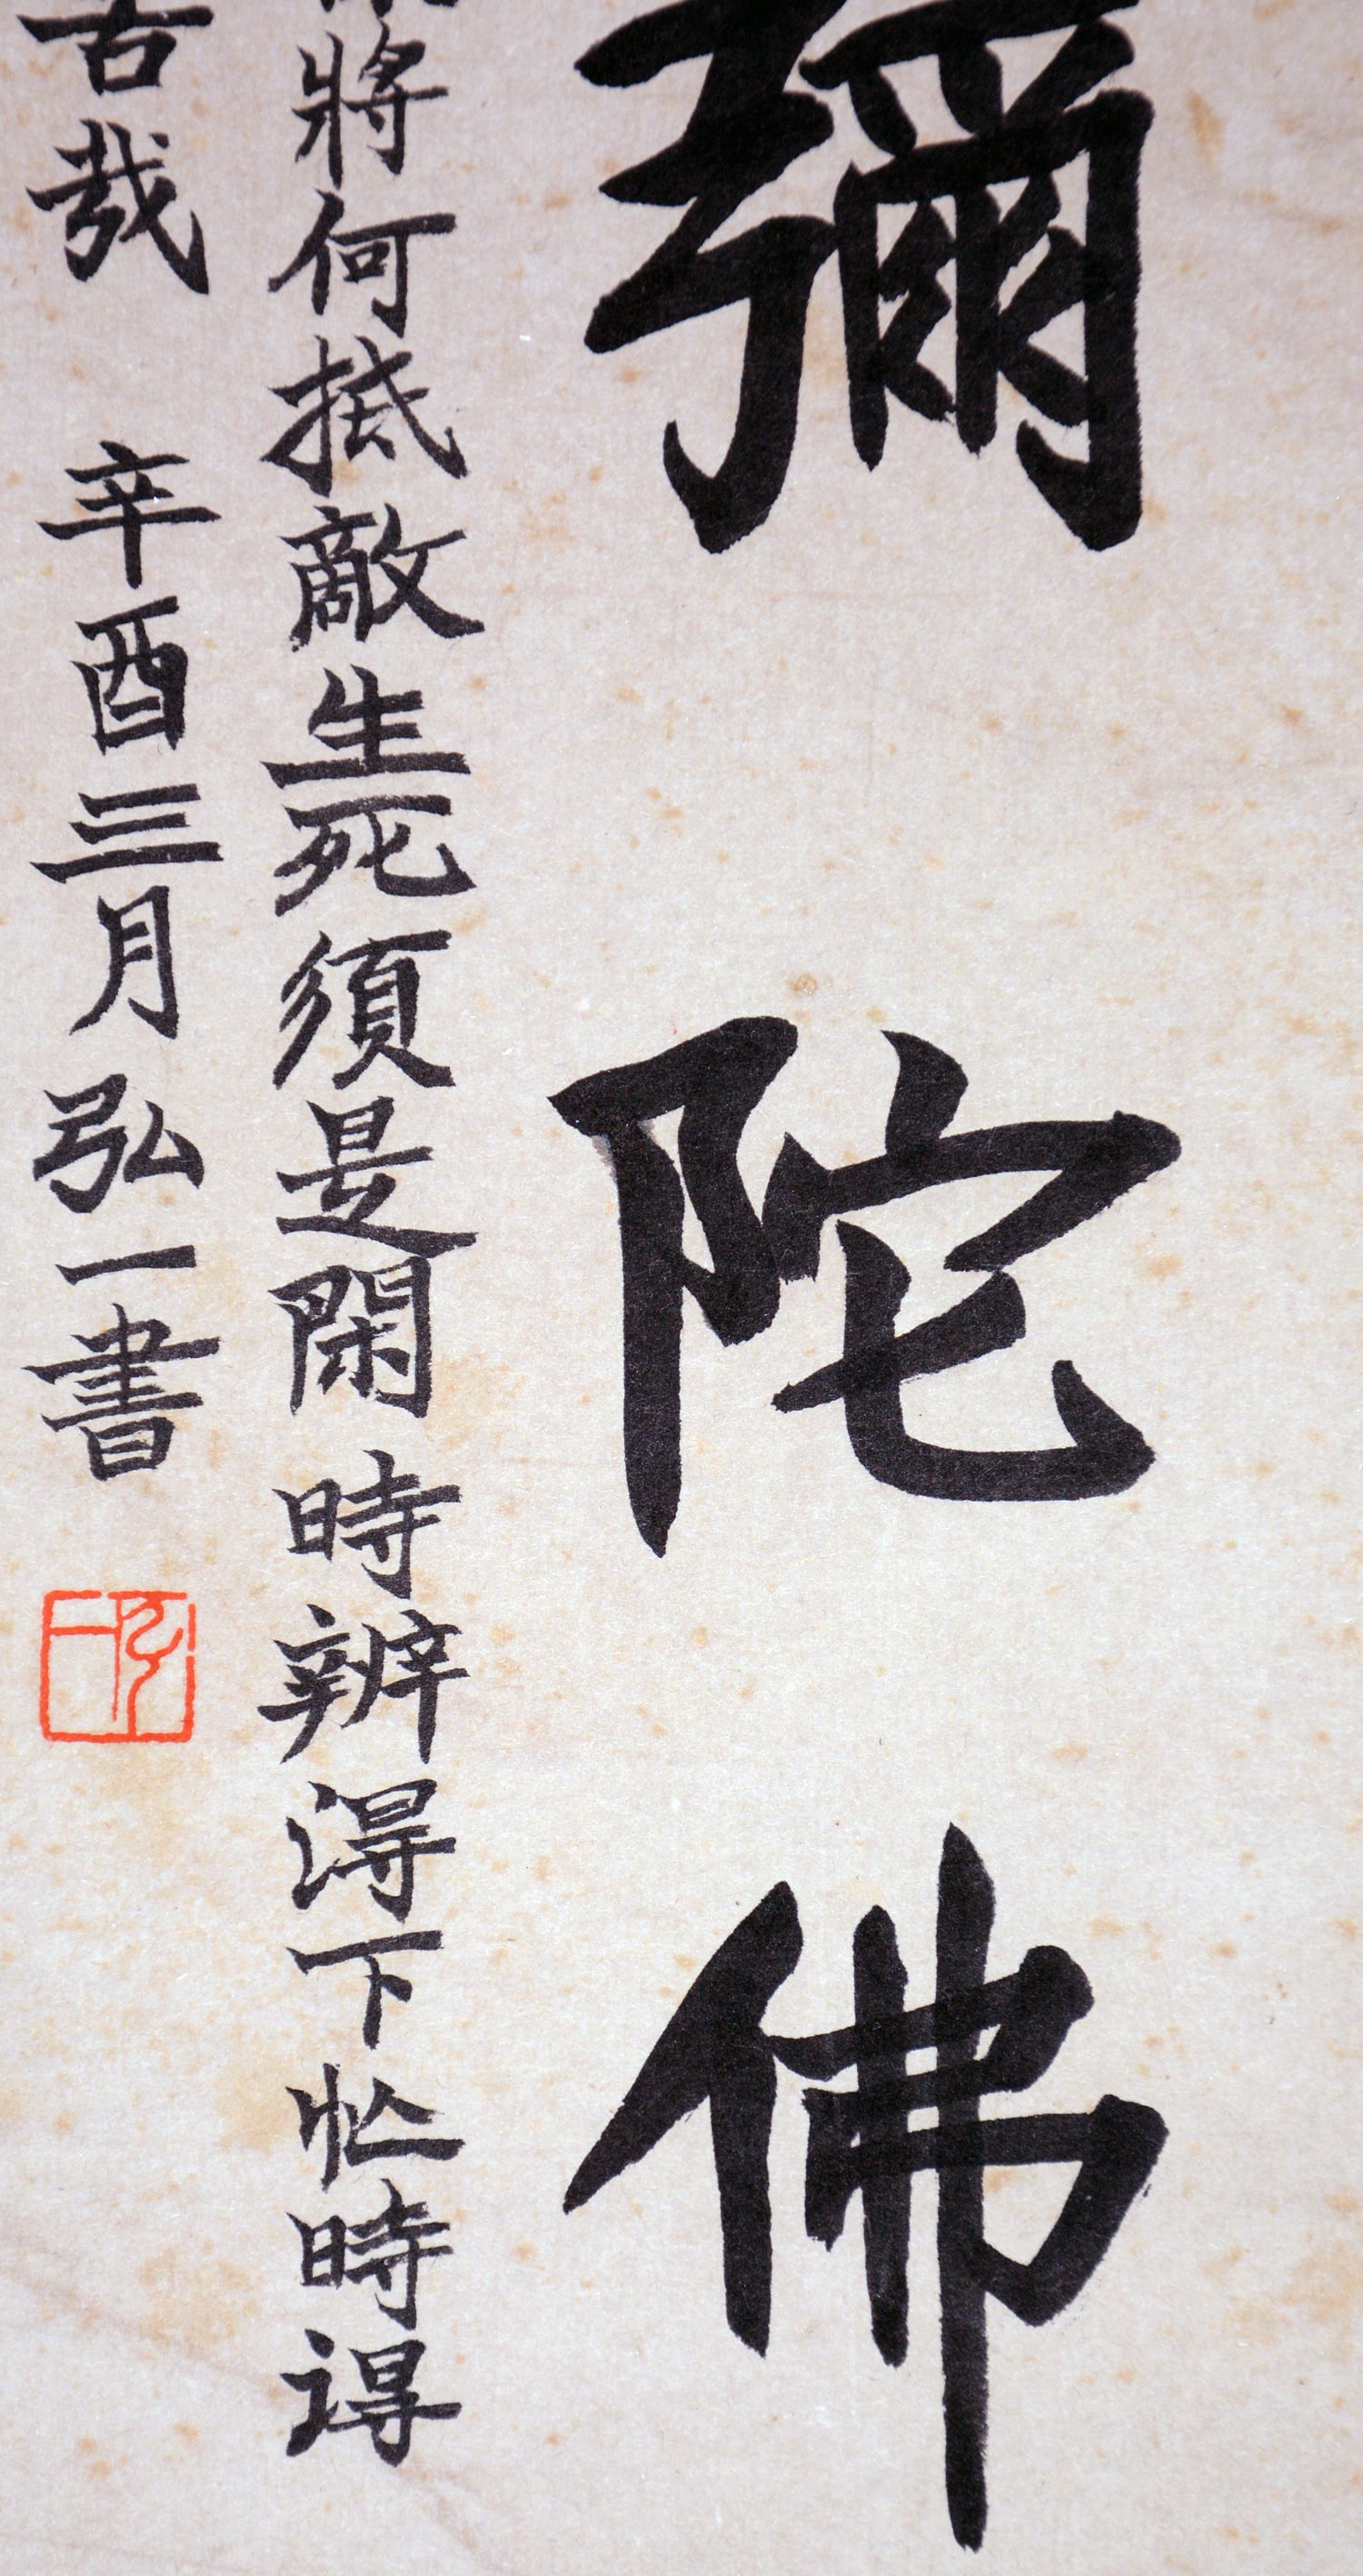 彌陀佛
將何抵敵生死須是閑時辨得下忙時得
苦哉 辛酉三月弘一書
弘一